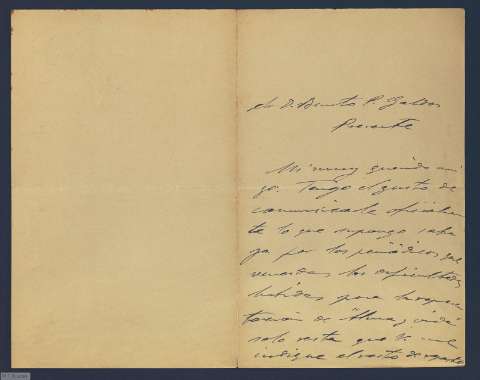 Sr D. Benito P. Galdós
Presente
Mi muy querido ami
go: Tengo el gusto de
comunicarle oficialmen
te lo que supongo sabe
ya por los periódicos que
vencidas las dificultades
habidas para la represen
tación de Alma y vida
solo resta que Vd. me
indique el resto de reparto